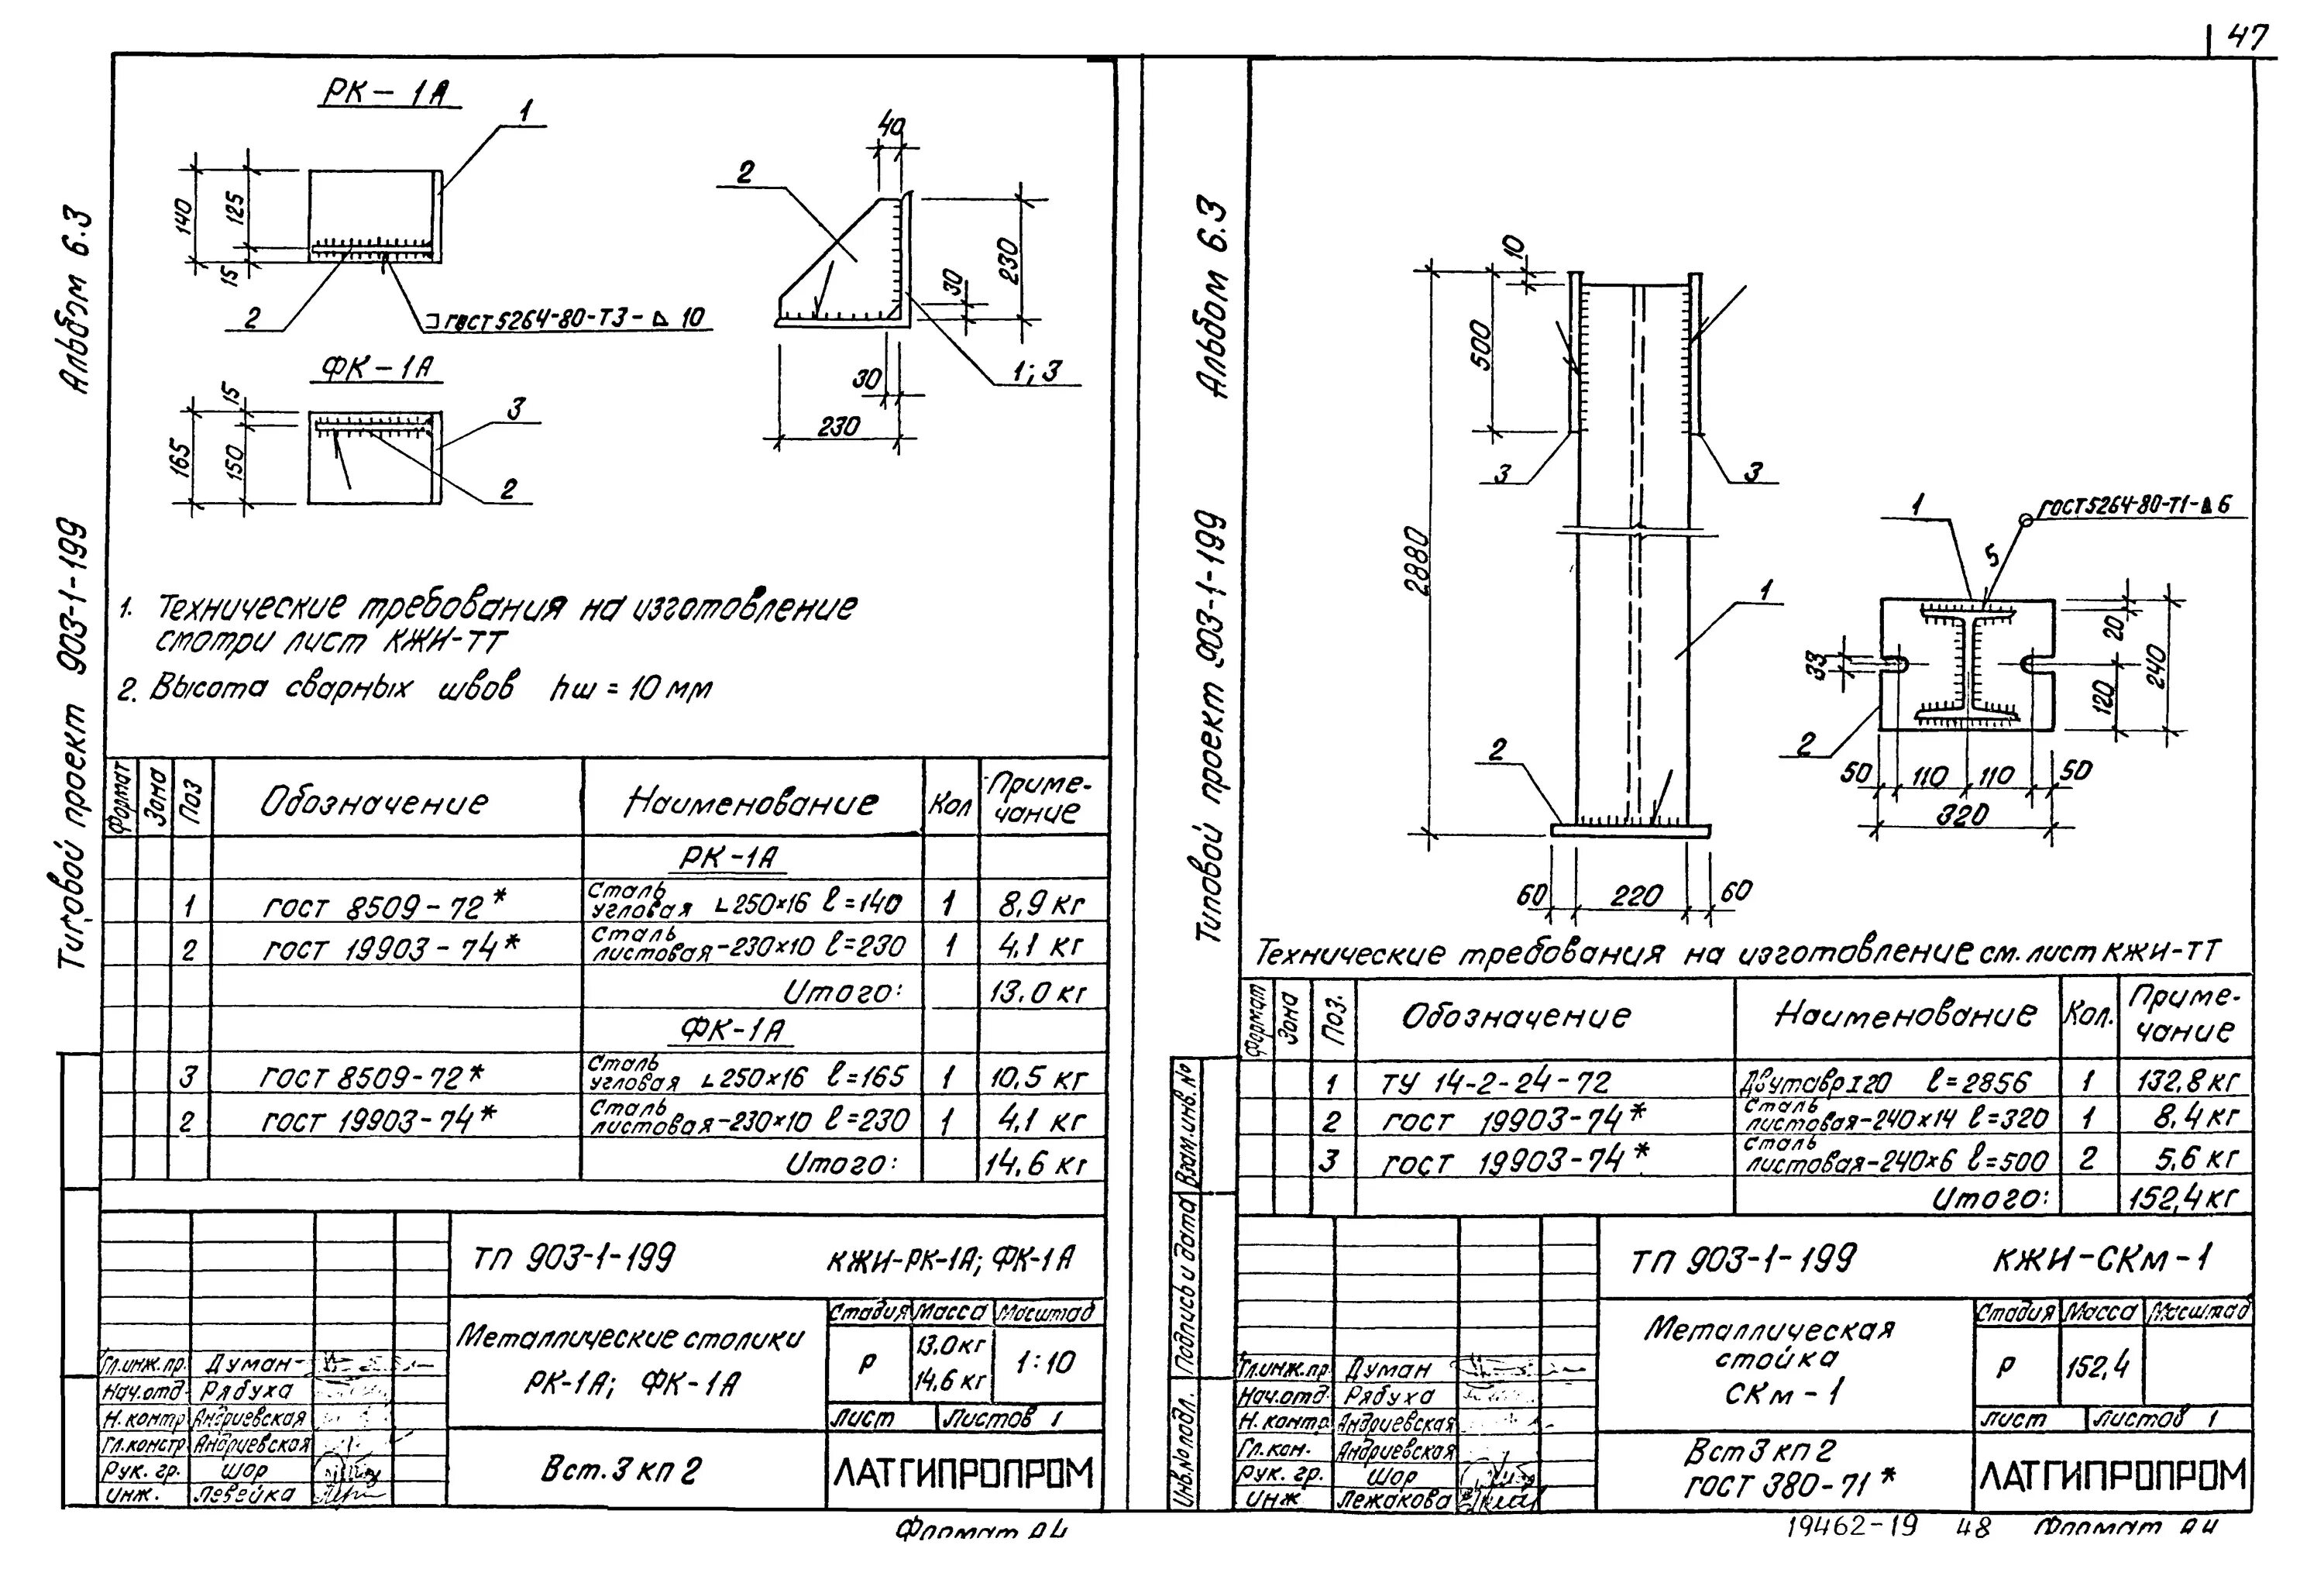 47
Альбом 6.3
Типовой проект 903-1-199
РК-1А
1
140
125
15
2
ГОСТ 5264-80-Т3-⊿ 10
ФК-1А
15
165
150
3
2
40
2
230
30
30
230
1; 3
1. Технические требования на изготовление
смотри лист КЖИ-ТТ
2. Высота сварных швов hш = 10 мм
Формат Зона Поз Обозначение Наименование Кол Приме-
чание
РК-1А
1 ГОСТ 8509-72* Сталь
угловая ∟250×16 ℓ=140 1 8,9 кг
2 ГОСТ 19903-74* Сталь
листовая-230×10 ℓ=230 1 4,1 кг
Итого: 13,0 кг
ФК-1А
3 ГОСТ 8509-72* Сталь
угловая ∟250×16 ℓ=165 1 10,5 кг
2 ГОСТ 19903-74* Сталь
листовая-230×10 ℓ=230 1 4,1 кг
Итого: 14,6 кг
ТП 903-1-199 КЖИ-РК-1А; ФК-1А
Металлические столики
РК-1А; ФК-1А
Стадия Масса Масштаб
Р 13.0 кг
14,6 кг 1:10
Лист Листов 1
Гл.инж.пр. Думан
Нач.отд Рябуха
Н.контр Андриевская
Гл.констр Андриевская
Рук. гр. Шор
Инж. Левейка
Вст.3 кп 2
ЛАТГИПРОПРОМ
Формат А4
Альбом 6.3
Типовой проект 903-1-199
10
500
2880
3
3
1
2
60
220
60
1
ГОСТ 5264-80-Т1-⊿6
5
33
20
240
120
2
50
110
110
50
320
Технические требования на изготовление см. лист КЖИ-ТТ
Формат Зона Поз. Обозначение Наименование Кол. Приме-
чание
1 ТУ 14-2-24-72 Двутавр I20 ℓ=2856 1 132,8 кг
2 ГОСТ 19903-74* Сталь
листовая-240×14 ℓ=320 1 8,4 кг
3 ГОСТ 19903-74* Сталь
листовая-240×6 ℓ=500 2 5,6 кг
Итого: 152,4 кг
Взам.инв.№
Подпись и дата
Инв.№ подл.
ТП 903-1-199 КЖИ-СКм-1
Металлическая
стойка
СКм-1
Стадия Масса Масштаб
Р 152,4
Лист Листов 1
Гл.инж.пр Думан
Нач.отд Рябуха
Н.контр. Андриевская
Гл.кон. Андриевская
Рук. гр. Шор
Инж Лежакова
Вст 3 кп 2
ГОСТ 380-71*
ЛАТГИПРОПРОМ
19462-19 48 Формат А4